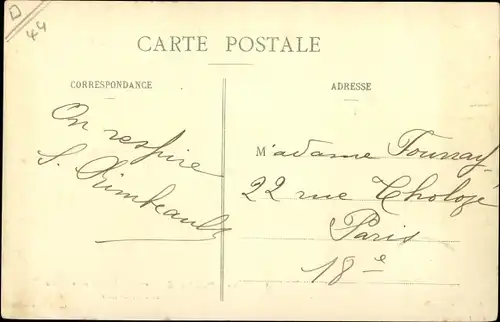 D
44
CARTE POSTALE
CORRESPONDANCE
On respire
S. Rimbeault
ADRESSE
M'adame Tournay
22 rue Tholozé
Paris
18e